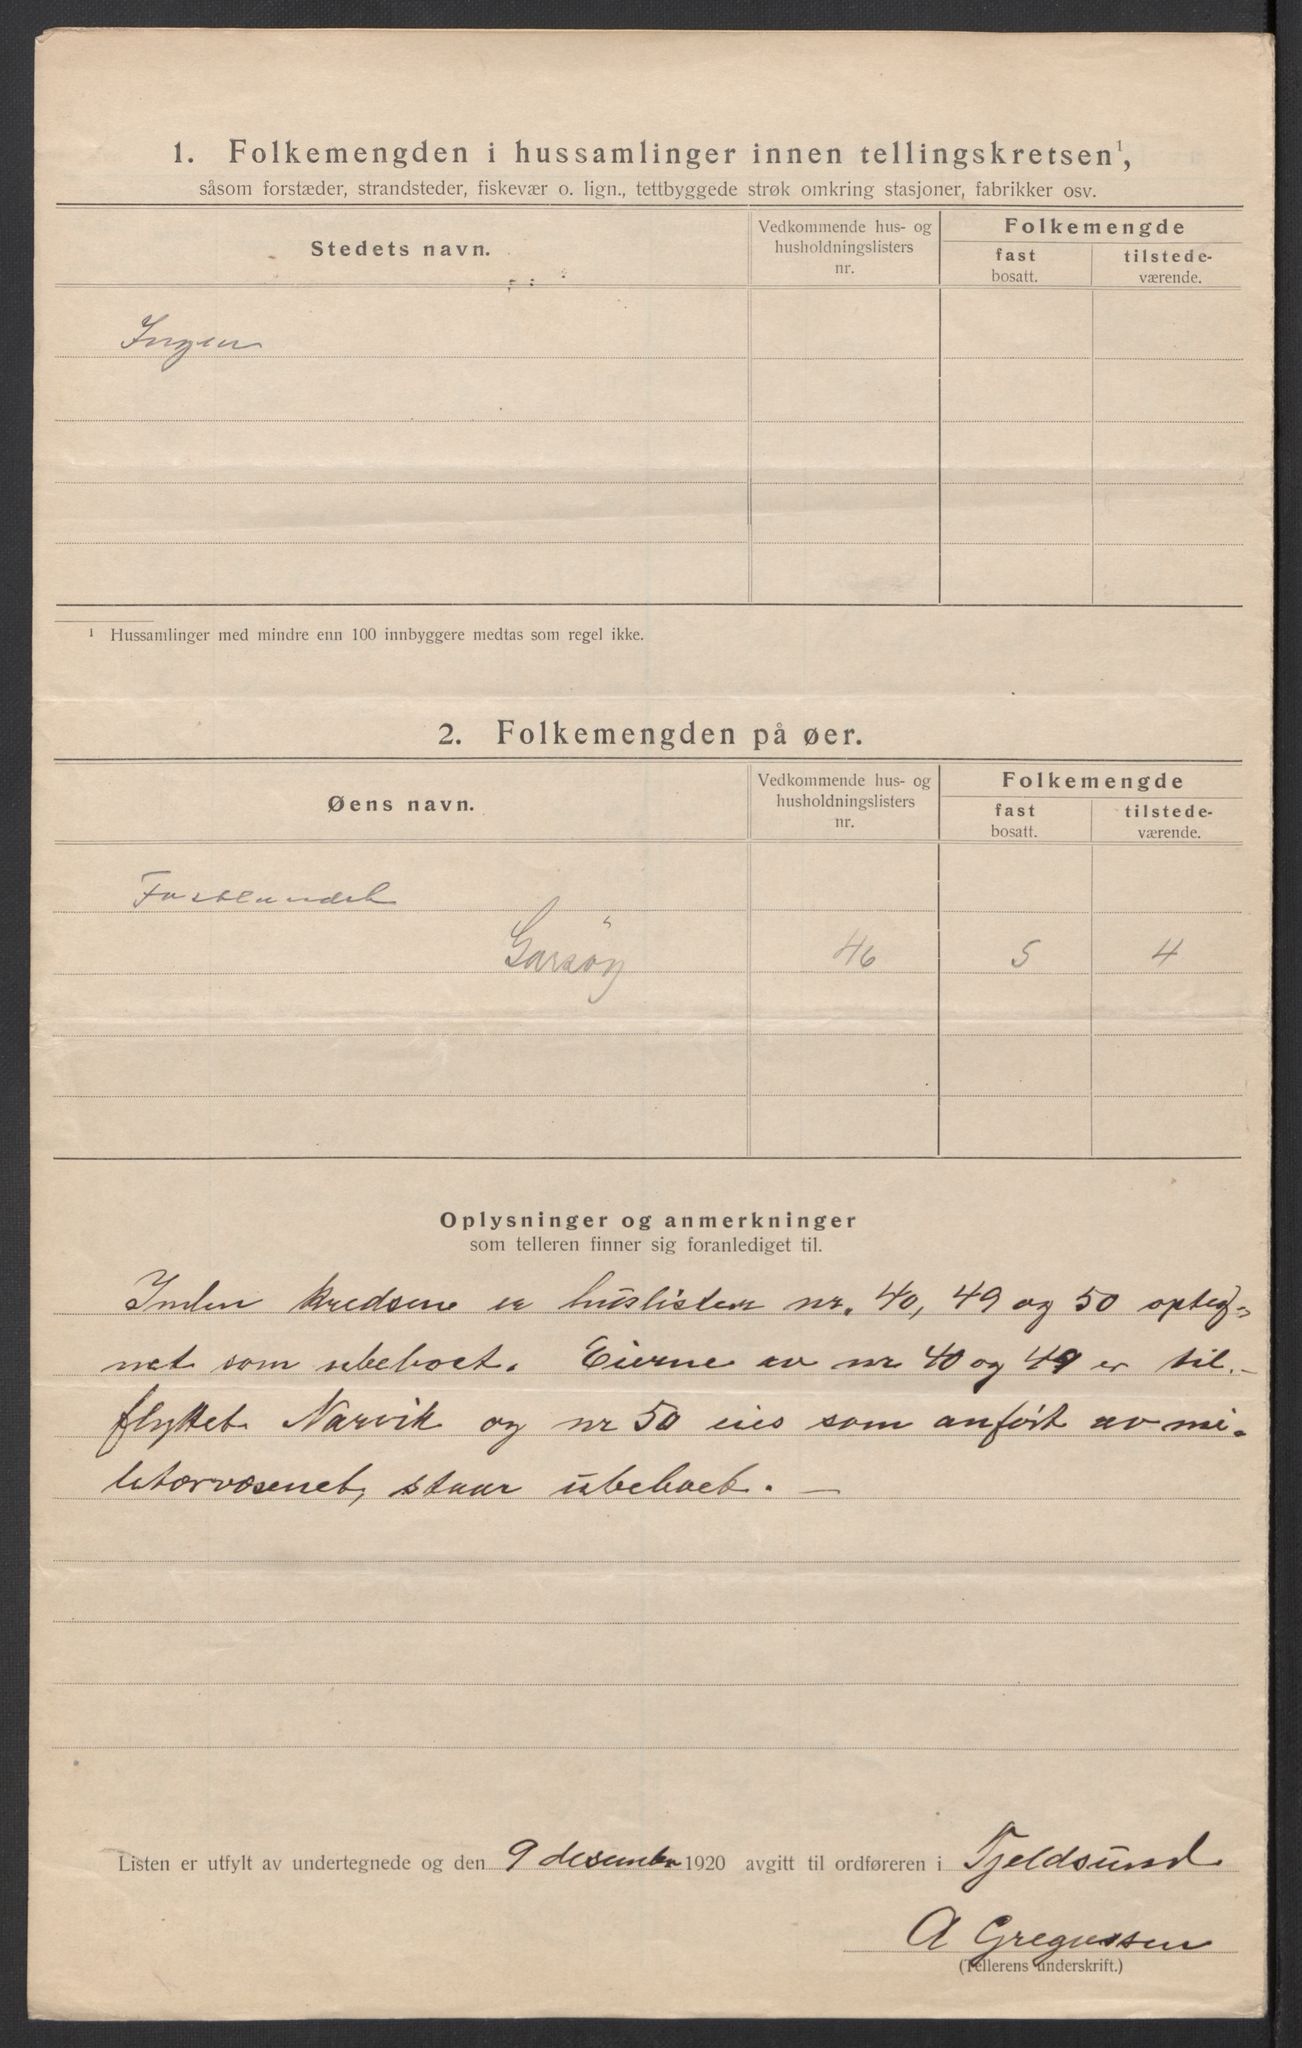 1. Folkemengden i hussamlinger innen tellingskretsen¹,
såsom forstæder, strandsteder, fiskevær o. lign., tettbyggede strøk omkring stasjoner, fabrikker osv.
Stedets navn.
Vedkommende hus- og
husholdningslisters
nr.
Folkemengde
fast
bosatt.
tilstede-
værende.
Ingen
¹ Hussamlinger med mindre enn 100 innbyggere medtas som regel ikke.
2. Folkemengden på øer.
Øens navn.
Vedkommende hus- og
husholdningslisters
nr.
Folkemengde
fast
bosatt.
tilstede-
værende.
Fastlandet
Garsöy 46 5 4
Oplysninger og anmerkninger
som telleren finner sig foranlediget til.
Inden kredsene er huslister nr. 40, 49 og 50 opteg-
net som ubeboet. Eierne av nr 40 og 49 er til-
flyttet Narvik og nr 50 eies som anført av mi-
litærvæsenet, staar ubeboet. —
Listen er utfylt av undertegnede og den 9 desember 1920 avgitt til ordføreren i Tjeldsund
A Gregussen
(Tellerens underskrift.)